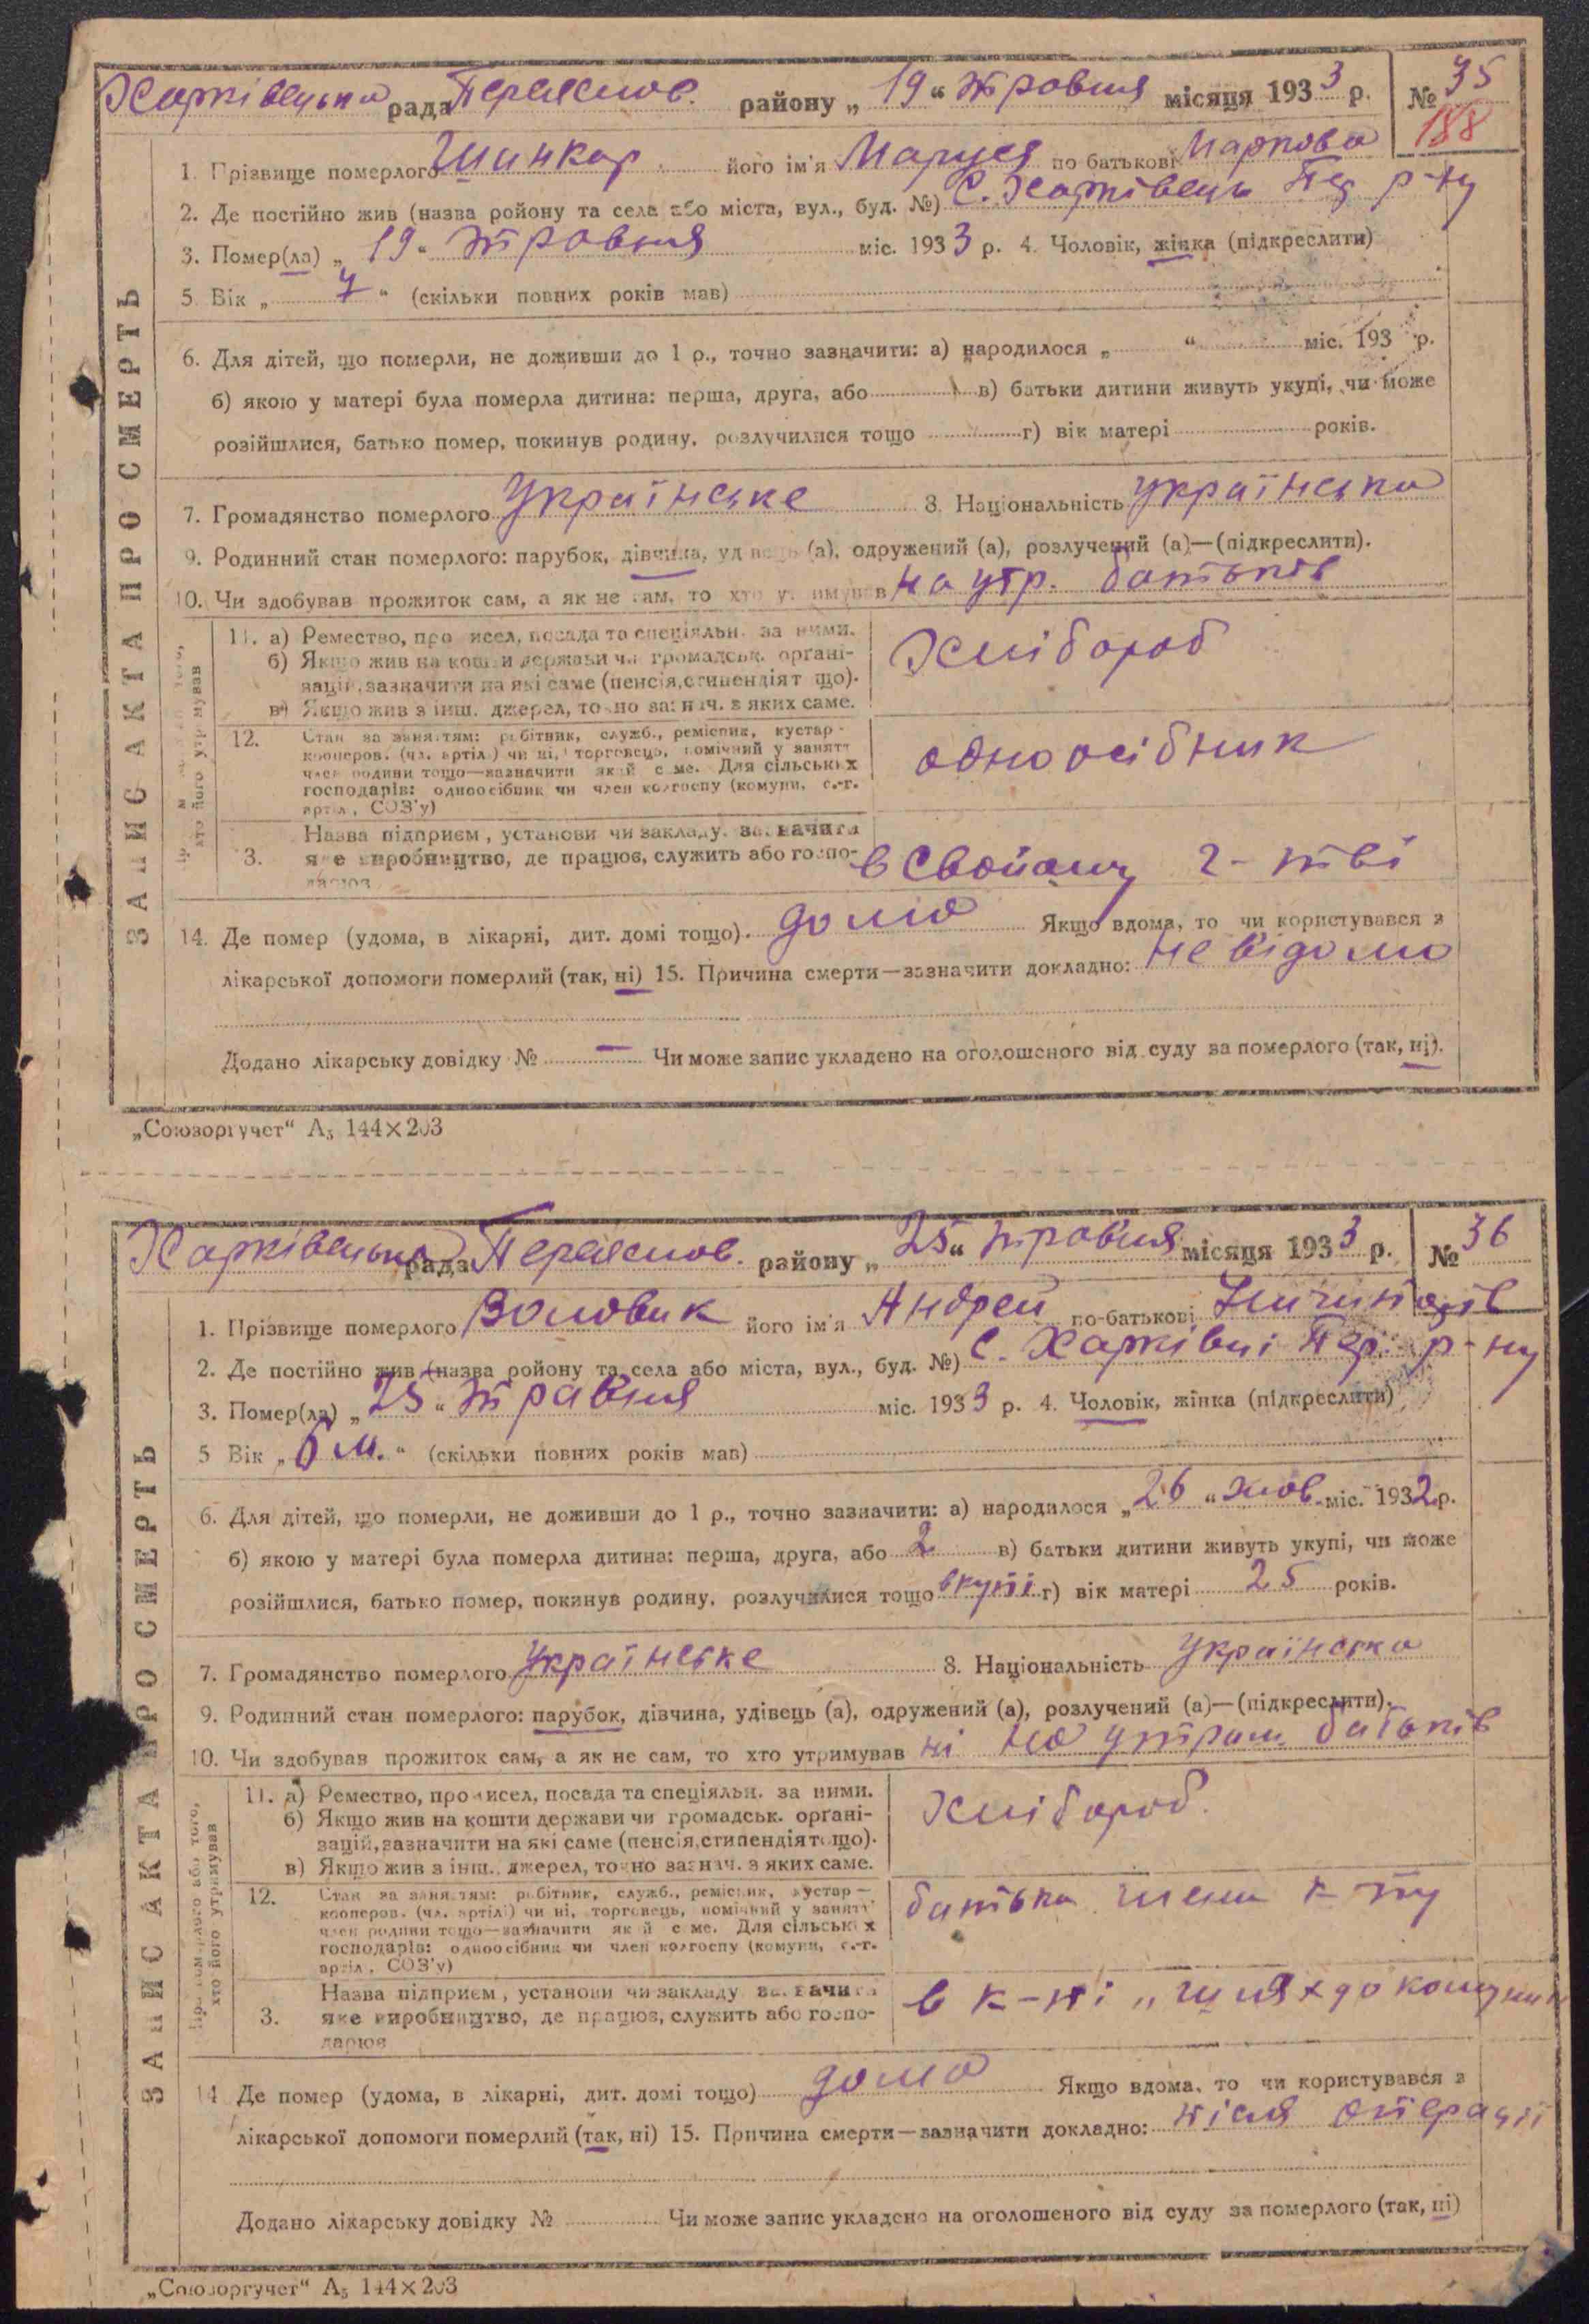 Харківецька рада Переяслов. району „ 19 “ травня місяця 1933 р. № 35
188
1. Прізвище померлого Шинкар його ім'я Маруся по батькові Маркова
2. Де постійно жив (назва ройону та села або міста, вул., буд. №) С. Харківець Пер р-ну
3. Помер(ла) „ 19 “ травня міс. 1933 р. 4. Чоловік, жінка (підкреслити)
5. Вік „ 7 “ (скільки повних років мав)
6. Для дітей, що померли, не доживши до 1 р., точно зазначити: а) народилося „ “ міс. 193 р.
б) якою у матері була померла дитина: перша, друга, або в) батьки дитини живуть укупі, чи може
розійшлися, батько помер, покинув родину, розлучилися тощо г) вік матері років.
7. Громадянство померлого Українське 8. Національність українська
9. Родинний стан померлого: парубок, дівчина, удівець (а), одружений (а), розлучений (а)—(підкреслити).
10. Чи здобував прожиток сам, а як не сам, то хто утримував на утр. батьків
ЗАПИС АКТА ПРО СМЕРТЬ
хто його утримував
11. а) Ремество, промисел, посада та спеціяльн. за ними.
б) Якщо жив на кошти держави чи громадськ. орґані-
зацій, зазначити на які саме (пенсія, стипендія тощо).
в) Якщо жив з інш. джерел, точно зазнач. з яких саме.
Хлібороб
12. Стан за заняттям: робітник, служб., ремісник, кустар-
кооперов. (чл. артілі) чи ні, торговець, помічний у занятт
член родини тощо—зазначити який саме. Для сільських
господарів: одноосібник чи член колгоспу (комуни, с.-г.
артіл, СОЗ'у)
одноосібник
3. Назва підприєм, установи чи закладу, зазначити
яке виробництво, де працює, служить або госпо-
дарює
в свойому г-тві
14. Де помер (удома, в лікарні, дит. домі тощо). дома Якщо вдома, то чи користувався з
лікарської допомоги померлий (так, ні) 15. Причина смерти—зазначити докладно: не відомо
Додано лікарську довідку № — Чи може запис укладено на оголошеного від суду за померлого (так, ні).
„Союзоргучет“ А5 144×203
Харківецька рада Переяслов. району „ 25 “ травня місяця 1933 р. № 36
1. Прізвище померлого Воловик його ім'я Андрей по-батькові
2. Де постійно жив (назва ройону та села або міста, вул., буд. №) С. Харківці Пер. р-ну
3. Помер(ла) „ 25 “ травня міс. 1933 р. 4. Чоловік, жінка (підкреслити)
5 Вік „ 6 м. “ (скільки повних років мав)
6. Для дітей, що померли, не доживши до 1 р., точно зазначити: а) народилося „ 26 “ жов. міс. 1932 р.
б) якою у матері була померла дитина: перша, друга, або 2 в) батьки дитини живуть укупі, чи може
розійшлися, батько помер, покинув родину, розлучилися тощо вкупі г) вік матері 25 років.
7. Громадянство померлого Українське 8. Національність Українська
9. Родинний стан померлого: парубок, дівчина, удівець (а), одружений (а), розлучений (а)—(підкреслити).
10. Чи здобував прожиток сам, а як не сам, то хто утримував ні на утрим. батьків
ЗАПИС АКТА ПРО СМЕРТЬ
Про померлого або того,
хто його утримував
11. а) Ремество, промисел, посада та спеціяльн. за ними.
б) Якщо жив на кошти держави чи громадськ. орґані-
зацій, зазначити на які саме (пенсія, стипендія тощо).
в) Якщо жив з інш. джерел, точно зазнач. з яких саме.
Хлібороб.
12. Стан за заняттям: робітник, служб., ремісник, кустар—
кооперов. (чл. артілі) чи ні, торговець, помічний у занятт
член родини тощо—зазначити який саме. Для сільських
господарів: одноосібник чи член колгоспу (комуни, с.-г.
артіл, СОЗ'у)
батьки члени к-пу
3. Назва підприєм, установи чи закладу зазначити
яке виробництво, де працює, служить або госпо-
дарює
в к-пі „шлях до комуни
14 Де помер (удома, в лікарні, дит. домі тощо) дома Якщо вдома, то чи користувався з
лікарської допомоги померлий (так, ні) 15. Причина смерти—зазначити докладно: після операції
Додано лікарську довідку № Чи може запис укладено на оголошеного від суду за померлого (так, ні)
„Союзоргучет“ А5 144×203